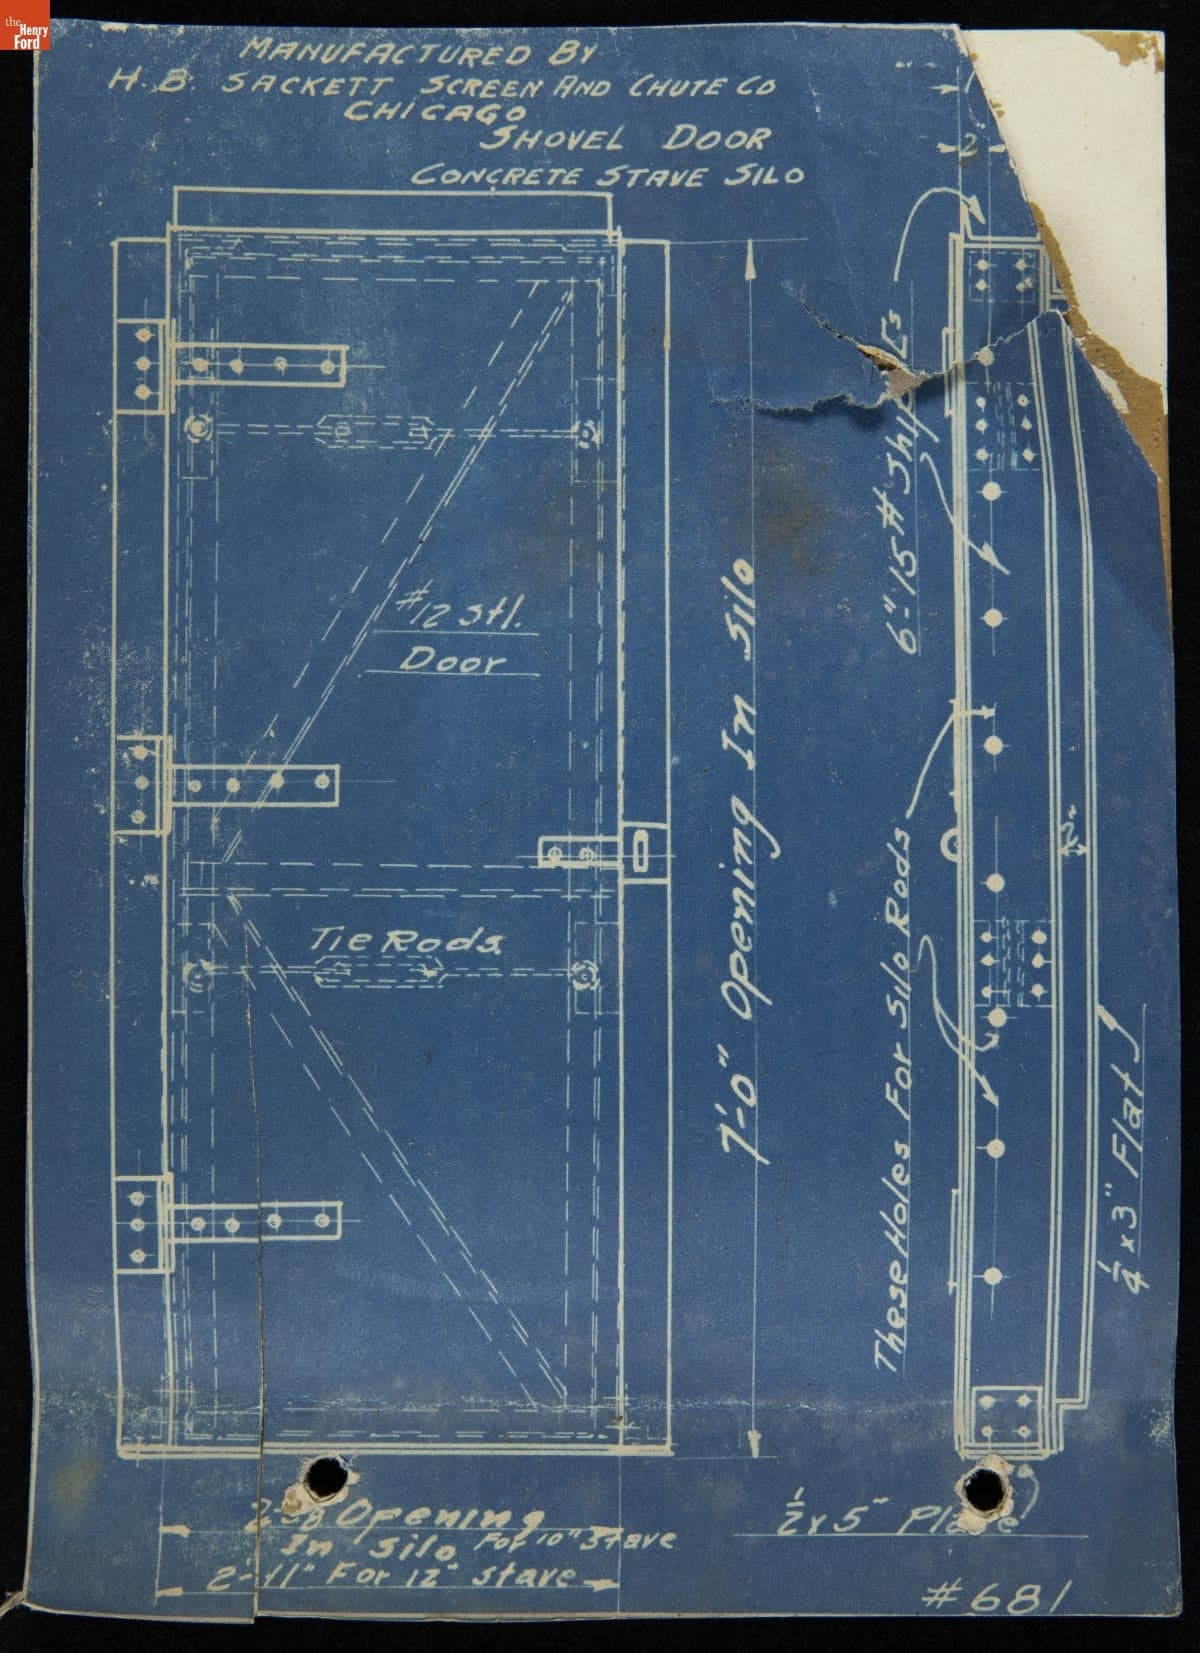 the
Henry
Ford
MANUFACTURED BY
H. B. SACKETT SCREEN AND CHUTE CO
CHICAGO
SHOVEL DOOR
CONCRETE STAVE SILO
2"
#12 Stl.
Door
Tie Rods.
7'-0" Opening In Silo
6"-15# Ship
These Holes For Silo Rods
1/4 x 3" Flat
Opening
In Silo For 10" Stave
2'-11" For 12" Stave
1/2 x 5" Plate
#681